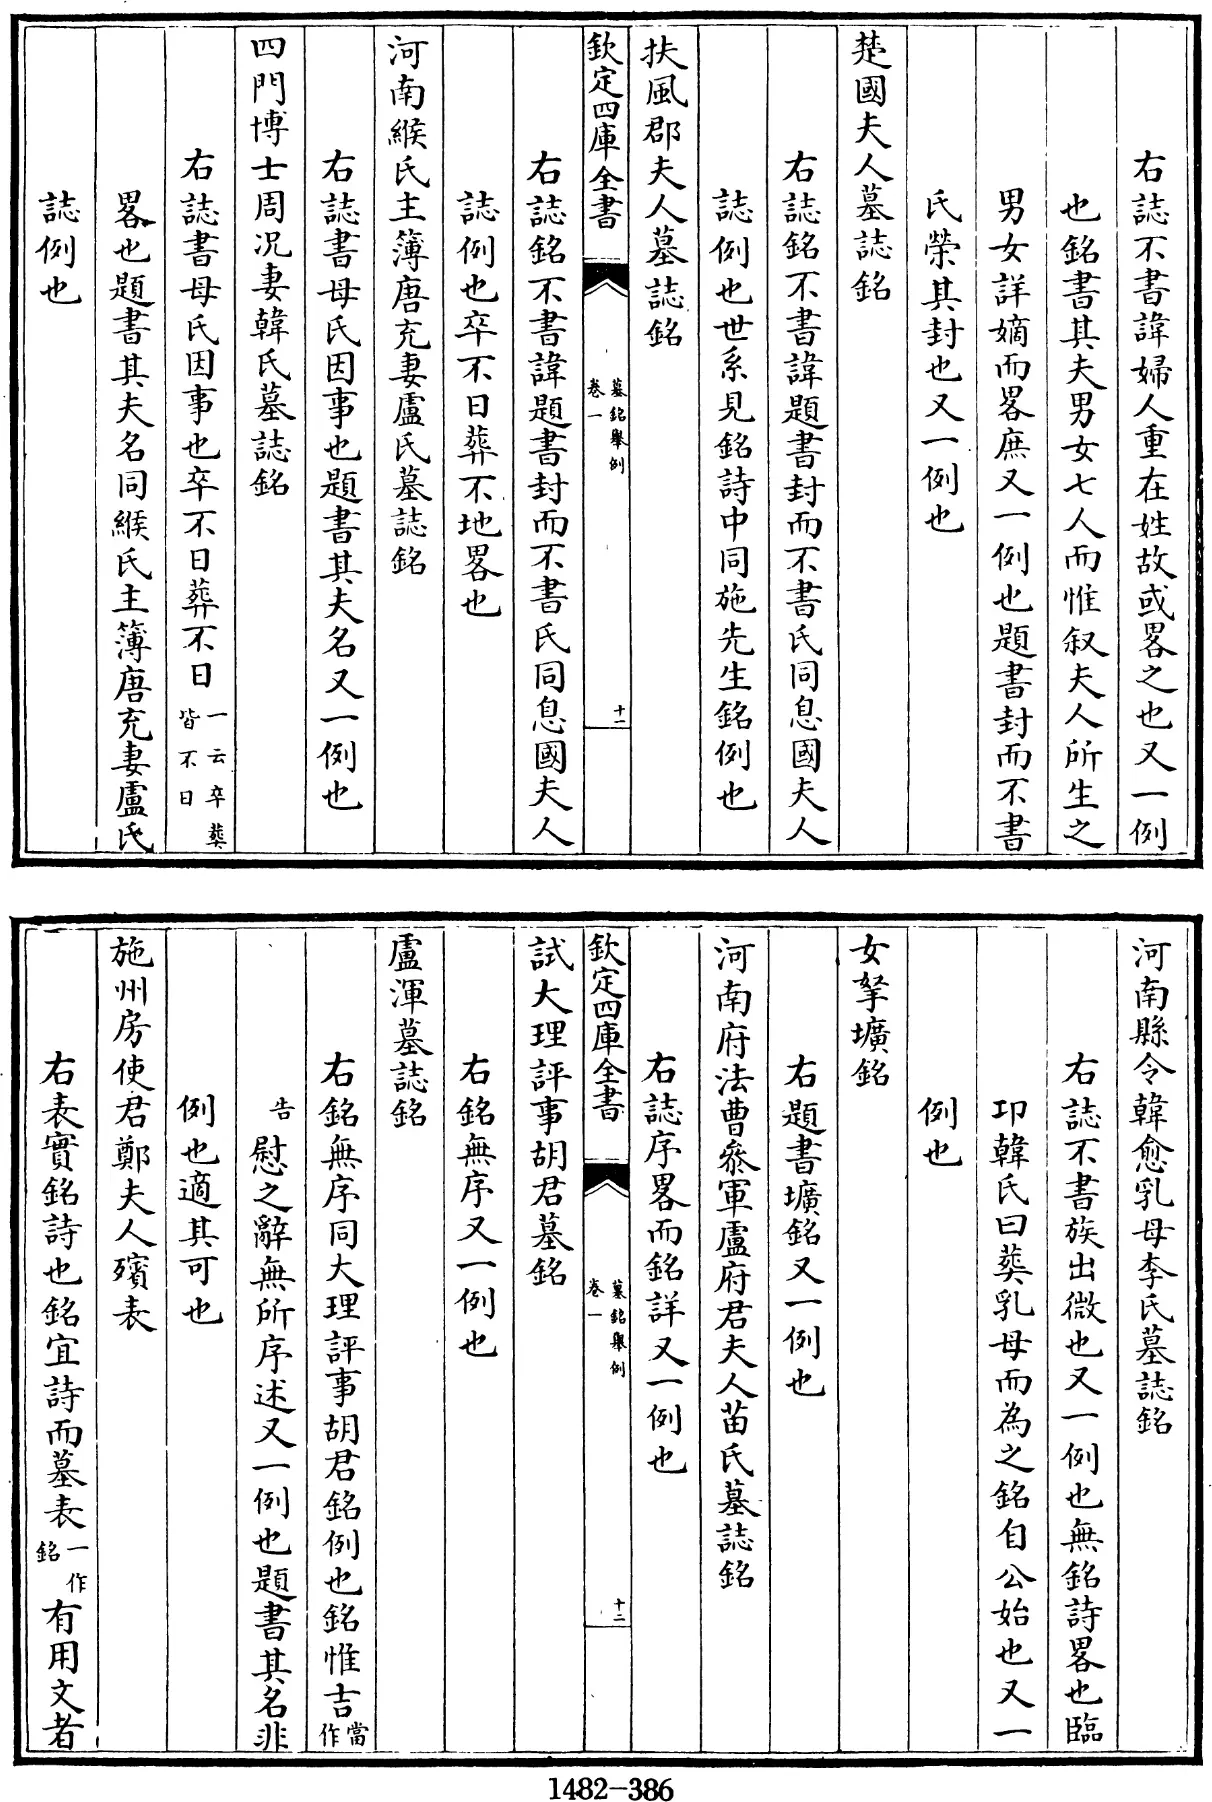 右誌不書諱婦人重在姓故或畧之也又一例
也銘書其夫男女七人而惟叙夫人所生之
男女詳嫡而畧庶又一例也題書封而不書
氏榮其封也又一例也
楚國夫人墓誌銘
右誌銘不書諱題書封而不書氏同息國夫人
誌例也世系見銘詩中同施先生銘例也
扶風郡夫人墓誌銘
欽定四庫全書
墓銘舉例
卷一
十一
右誌銘不書諱題書封而不書氏同息國夫人
誌例也卒不日葬不地畧也
河南緱氏主簿唐充妻盧氏墓誌銘
右誌書母氏因事也題書其夫名又一例也
四門博士周况妻韓氏墓誌銘
右誌書母氏因事也卒不日葬不日一云卒葬皆不日
畧也題書其夫名同緱氏主簿唐充妻盧氏
誌例也
河南縣令韓愈乳母李氏墓誌銘
右誌不書族出微也又一例也無銘詩畧也臨
卭韓氏曰葬乳母而為之銘自公始也又一
例也
女挐壙銘
右題書壙銘又一例也
河南府法曹叅軍盧府君夫人苗氏墓誌銘
右誌序畧而銘詳又一例也
欽定四庫全書
墓銘舉例
卷一
十二
試大理評事胡君墓銘
右銘無序又一例也
盧渾墓誌銘
右銘無序同大理評事胡君銘例也銘惟吉當作
告慰之辭無所序述又一例也題書其名非
例也適其可也
施州房使君鄭夫人殯表
右表實銘詩也銘宜詩而墓表一作銘有用文者
1482-386